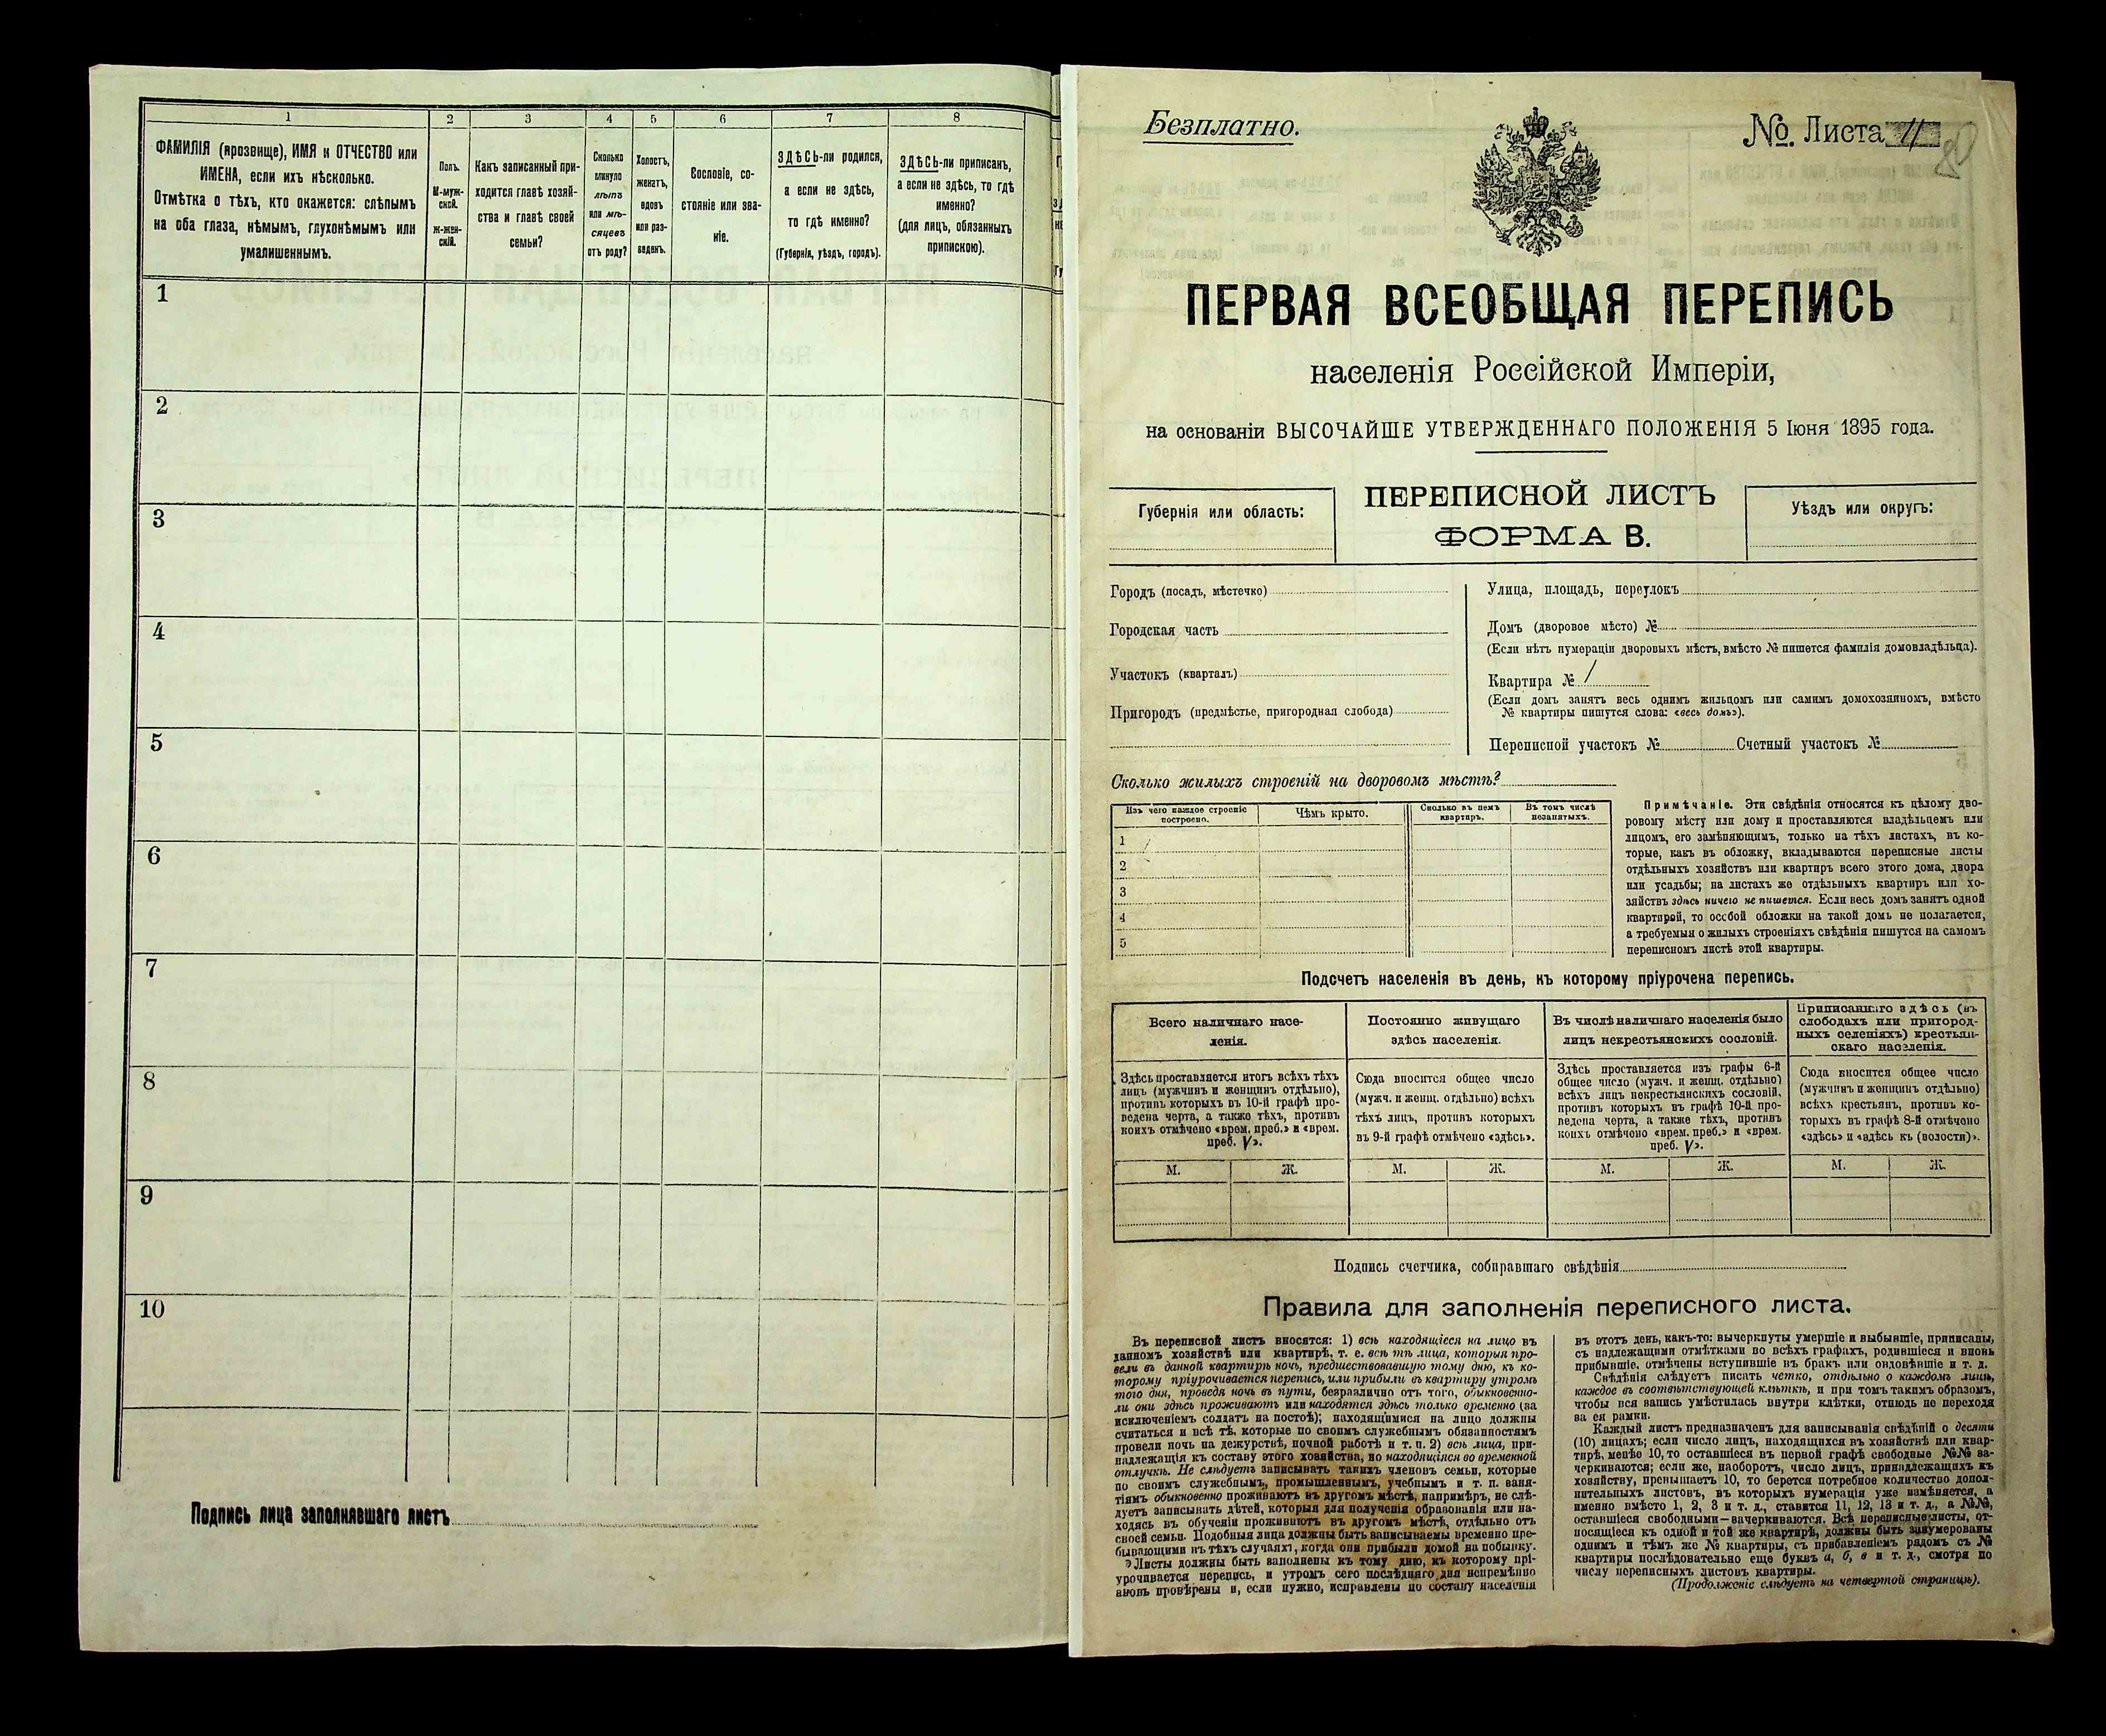 1 2 3 4 5 6 7 8
ФАМИЛІЯ (прозвище), ИМЯ и ОТЧЕСТВО или
ИМЕНА, если ихъ нѣсколько.
Отмѣтка о тѣхъ, кто окажется: слѣпымъ
на оба глаза, нѣмымъ, глухонѣмымъ или
умалишеннымъ.
Полъ.
М-муж-
ской.
Ж-жен-
скій.
Какъ записанный при-
ходится главѣ хозяй-
ства и главѣ своей
семьи?
Сколько
минуло
лѣтъ
или мѣ-
сяцевъ
отъ роду?
Холостъ,
женатъ,
вдовъ
или раз-
веденъ.
Сословіе, со-
стояніе или зва-
ніе.
ЗДѢСЬ-ли родился,
а если не здѣсь,
то гдѣ именно?
(Губернія, уѣздъ, городъ).
ЗДѢСЬ-ли приписанъ,
а если не здѣсь, то гдѣ
именно?
(для лицъ, обязанныхъ
припискою).
1
2
3
4
5
6
7
8
9
10
Подпись лица заполнявшаго листъ
Безплатно.
№ Листа 11
ПЕРВАЯ ВСЕОБЩАЯ ПЕРЕПИСЬ
населенія Россійской Имперіи,
на основаніи ВЫСОЧАЙШЕ УТВЕРЖДЕННАГО ПОЛОЖЕНІЯ 5 Іюня 1895 года.
Губернія или область:
ПЕРЕПИСНОЙ ЛИСТЪ
ФОРМА В.
Уѣздъ или округъ:
Городъ (посадъ, мѣстечко)
Городская часть
Участокъ (кварталъ)
Пригородъ (предмѣстье, пригородная слобода)
Улица, площадь, переулокъ
Домъ (дворовое мѣсто) №
(Если нѣтъ нумераціи дворовыхъ мѣстъ, вмѣсто № пишется фамилія домовладѣльца).
Квартира № 1
(Если домъ занятъ весь однимъ жильцомъ или самимъ домохозяиномъ, вмѣсто
№ квартиры пишутся слова: «весь домъ»).
Переписной участокъ № Счетный участокъ №
Сколько жилыхъ строеній на дворовомъ мѣстѣ?
Изъ чего каждое строеніе
построено.
Чѣмъ крыто.
Сколько въ немъ
квартиръ.
Въ томъ числѣ
незанятыхъ.
1
2
3
4
5
Примѣчаніе. Эти свѣдѣнія относятся къ цѣлому дво-
ровому мѣсту или дому и проставляются владѣльцемъ или
лицомъ, его замѣняющимъ, только на тѣхъ листахъ, въ ко-
торые, какъ въ обложку, вкладываются переписные листы
отдѣльныхъ хозяйствъ или квартиръ всего этого дома, двора
или усадьбы; на листахъ же отдѣльныхъ квартиръ или хо-
зяйствъ здѣсь ничего не пишется. Если весь домъ занятъ одной
квартирой, то особой обложки на такой домъ не полагается,
а требуемыя о жилыхъ строеніяхъ свѣдѣнія пишутся на самомъ
переписномъ листѣ этой квартиры.
Подсчетъ населенія въ день, къ которому пріурочена перепись.
Всего наличнаго насе-
ленія.
Постоянно живущаго
здѣсь населенія.
Въ числѣ наличнаго населенія было
лицъ некрестьянскихъ сословій.
Приписаннаго здѣсь (въ
слободахъ или пригород-
ныхъ селеніяхъ) крестьян-
скаго населенія.
Здѣсь проставляется итогъ всѣхъ тѣхъ
лицъ (мужчинъ и женщинъ отдѣльно),
противъ которыхъ въ 10-й графѣ про-
ведена черта, а также тѣхъ, противъ
коихъ отмѣчено «врем. преб.» и «врем.
преб. V».
Сюда вносится общее число
(мужч. и женщ. отдѣльно) всѣхъ
тѣхъ лицъ, противъ которыхъ
въ 9-й графѣ отмѣчено «здѣсь».
Здѣсь проставляется изъ графы 6-й
общее число (мужч. и женщ. отдѣльно)
всѣхъ лицъ некрестьянскихъ сословій,
противъ которыхъ въ графѣ 10-й про-
ведена черта, а также тѣхъ, противъ
коихъ отмѣчено «врем. преб.» и «врем.
преб. V».
Сюда вносится общее число
(мужчинъ и женщинъ отдѣльно)
всѣхъ крестьянъ, противъ ко-
торыхъ въ графѣ 8-й отмѣчено
«здѣсь» и «здѣсь къ (волости)».
М. Ж. М. Ж. М. Ж. М. Ж.
Подпись счетчика, собиравшаго свѣдѣнія
Правила для заполненія переписного листа.
Въ переписной листъ вносятся: 1) всѣ находящіеся на лицо въ
данномъ хозяйствѣ или квартирѣ, т. е. всѣ тѣ лица, которыя про-
вели въ данной квартирѣ ночь, предшествовавшую тому дню, къ ко-
торому пріурочивается перепись, или прибыли въ квартиру утромъ
того дня, проведя ночь въ пути, безразлично отъ того, обыкновенно-
ли они здѣсь проживаютъ или находятся здѣсь только временно (за
исключеніемъ солдатъ на постоѣ); находящимися на лицо должны
считаться и всѣ тѣ, которые по своимъ служебнымъ обязанностямъ
провели ночь на дежурствѣ, ночной работѣ и т. п. 2) всѣ лица, при-
надлежащія къ составу этого хозяйства, но находящіяся во временной
отлучкѣ. Не слѣдуетъ записывать такихъ членовъ семьи, которые
по своимъ служебнымъ, промышленнымъ, учебнымъ и т. п. заня-
тіямъ обыкновенно проживаютъ въ другомъ мѣстѣ, напримѣръ, не слѣ-
дуетъ записывать дѣтей, которыя для полученія образованія или на-
ходясь въ обученіи проживаютъ въ другомъ мѣстѣ, отдѣльно отъ
своей семьи. Подобныя лица должны быть записываемы временно пре-
бывающими въ тѣхъ случаяхъ, когда они прибыли домой на побывку.
Листы должны быть заполнены къ тому дню, къ которому прі-
урочивается перепись, и утромъ сего послѣдняго дня непремѣнно
вновь провѣрены и, если нужно, исправлены по составу населенія
въ этотъ день, какъ-то: вычеркнуты умершіе и выбывшіе, приписаны,
съ надлежащими отмѣтками во всѣхъ графахъ, родившіеся и вновь
прибывшіе, отмѣчены вступившіе въ бракъ или овдовѣвшіе и т. д.
Свѣдѣнія слѣдуетъ писать четко, отдѣльно о каждомъ лицѣ,
каждое въ соотвѣтствующей клѣткѣ, и при томъ такимъ образомъ,
чтобы вся запись умѣстилась внутри клѣтки, отнюдь не переходя
за ея рамки.
Каждый листъ предназначенъ для записыванія свѣдѣній о десяти
(10) лицахъ; если число лицъ, находящихся въ хозяйствѣ или квар-
тирѣ, менѣе 10, то оставшіеся въ первой графѣ свободные №№ за-
черкиваются; если же, наоборотъ, число лицъ, принадлежащихъ къ
хозяйству, превышаетъ 10, то берется потребное количество допол-
нительныхъ листовъ, въ которыхъ нумерація уже измѣняется, а
именно вмѣсто 1, 2, 3 и т. д., ставится 11, 12, 13 и т. д., а №№,
оставшіеся свободными—зачеркиваются. Всѣ переписные листы, от-
носящіеся къ одной и той же квартирѣ, должны быть занумерованы
однимъ и тѣмъ же № квартиры, съ прибавленіемъ рядомъ съ №
квартиры послѣдовательно еще буквъ а, б, в и т. д., смотря по
числу переписныхъ листовъ квартиры.
(Продолженіе слѣдуетъ на четвертой страницѣ).